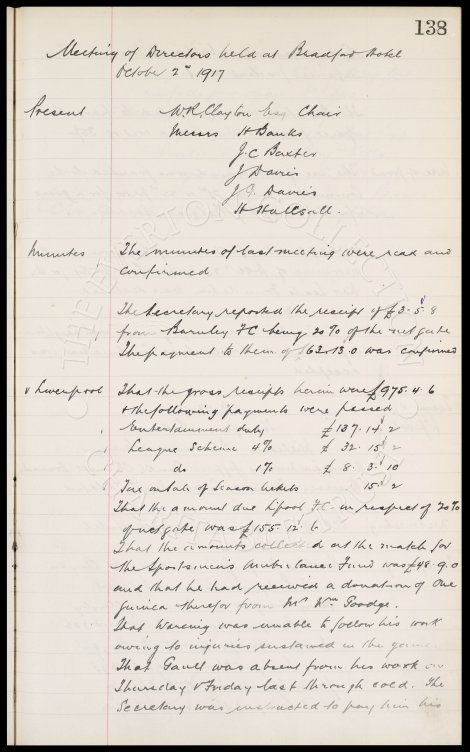 138
Meeting of Directors held at Bradford Hotel
October 2nd 1917
Present W.R. Clayton Esq Chair
Messrs H Banks
J.C Baxter
J Davies
J.J. Davies
H Halsall.
Minutes The minutes of last meeting were read and
confirmed
The Secretary reported the receipt of £3.5.8
from Burnley FC being 20% of the nett gate
The payment to them of £63.13.0 was confirmed
v Liverpool That the gross receipts herein were £975.4.6
& the following payments were passed
Entertainment duty £137.14.2
League Scheme 4% £32.15.2
do 1% £8.3.10
on sale of Season tickets 15.2
That the amount due Lpool FC. in respect of 20%
of net gate was £155.12.6
That the amounts collected at the match for
the Sportsmen's Ambulance Fund was £48.9.0
and that he had received a donation of One
guinea therefor from Mr Wm Goodge.
That Wareing was unable to follow his work
owing to injuries sustained in the game.
That Gault was absent from his work on
Thursday & Friday last through cold. The
Secretary was instructed to pay him his
THE EVERTON COLLECTION